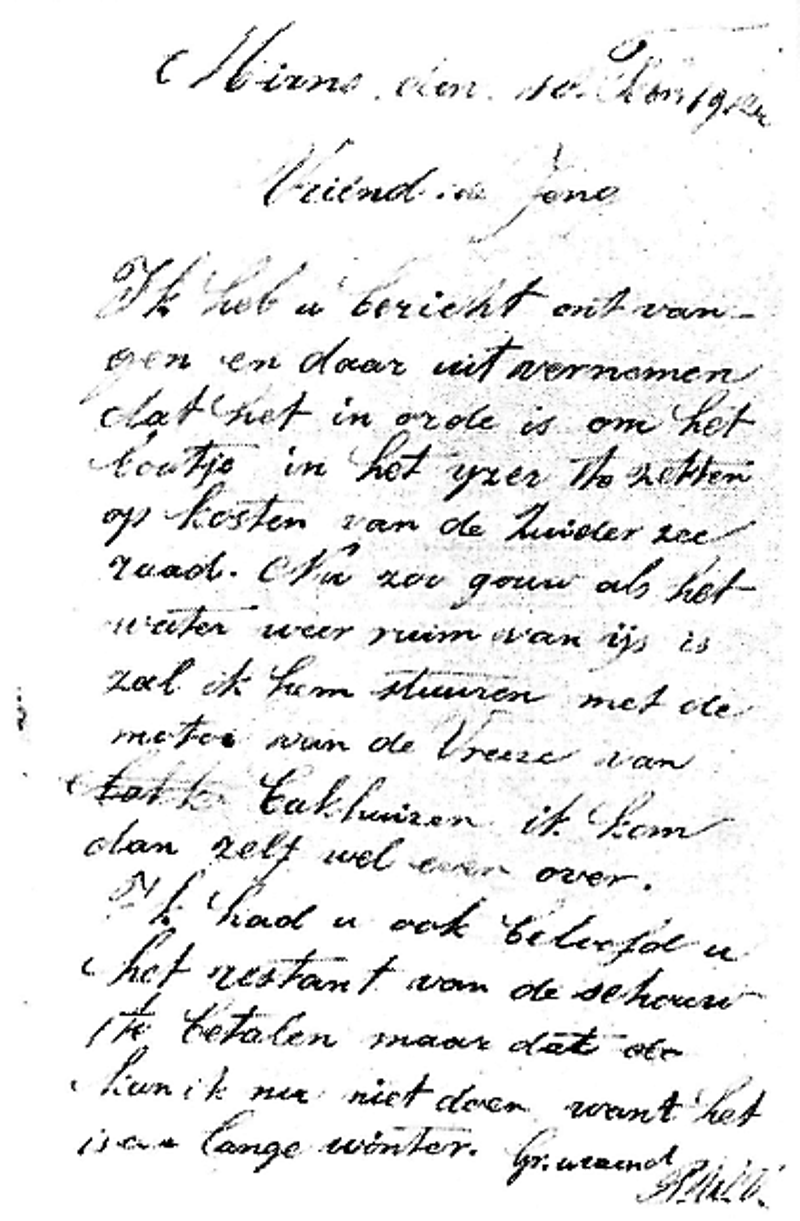 Mirns den 10 Febr
Vriend de Jong
Ik heb u bericht ontvan-
gen en daar uit vernomen
dat het in orde is om het
boutje in het yzer te zetten
op kosten van de Zuider zee
raad. Nu zoo gouw als het
water weer ruim van ijs is
zal ik hem stuuren met de
motor van de Vreeze van
bakhuizen ik kom
dan zelf wel even over.
Ik had u ook beloofd u
het restant van de schouw
te betalen maar dat
kan ik nu niet doen want het
is een lange winter. Gr. uw vriend